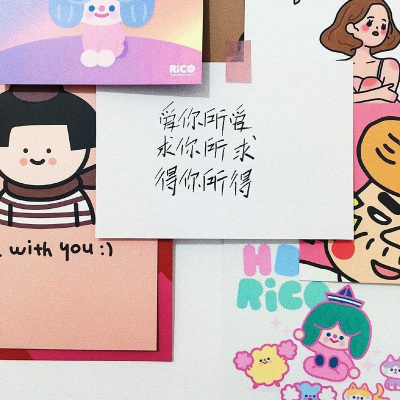 RiCO
爱你所爱
求你所求
得你所得
with you :)
RiCO